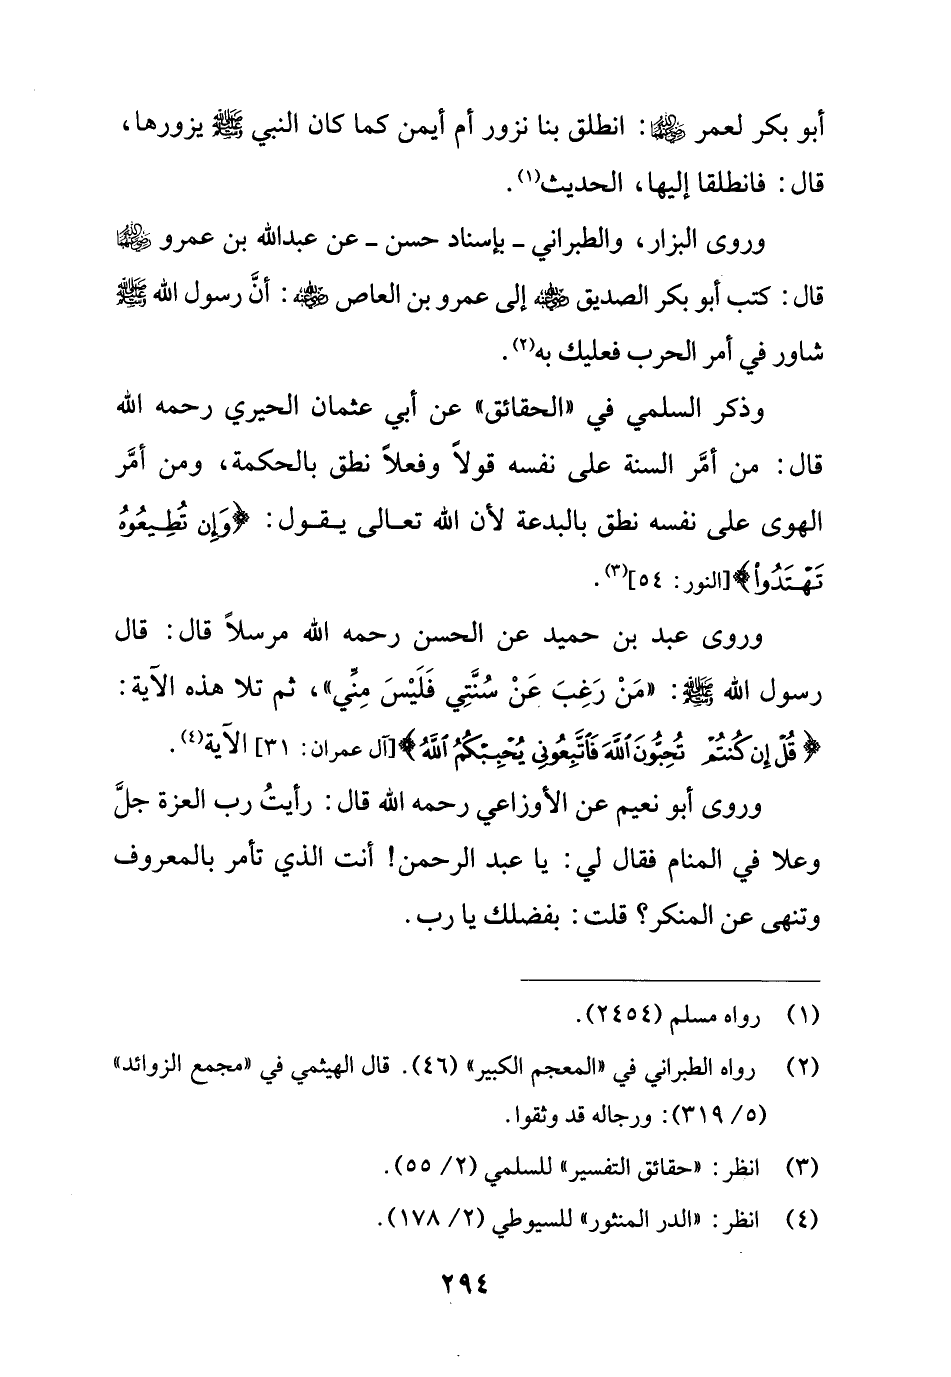 أبو بكر لعمر ﵄: انطلق بنا نزور أم أيمن كما كان النبي ﷺ يزورها،
قال: فانطلقا إليها، الحديث(١).
وروى البزار، والطبراني ـ بإسناد حسن ـ عن عبدالله بن عمرو ﵄
قال: كتب أبو بكر الصديق ﵁ إلى عمرو بن العاص ﵁: أنَّ رسول الله ﷺ
شاور في أمر الحرب فعليك به(٢).
وذكر السلمي في «الحقائق» عن أبي عثمان الحيري رحمه الله
قال: من أمَّر السنة على نفسه قولاً وفعلاً نطق بالحكمة، ومن أمَّر
الهوى على نفسه نطق بالبدعة لأن الله تعالى يقول: ﴿وَإِن تُطِيعُوهُ
تَهْتَدُواْ﴾[النور: ٥٤](٣).
وروى عبد بن حميد عن الحسن رحمه الله مرسلاً قال: قال
رسول الله ﷺ: «مَنْ رَغِبَ عَنْ سُنَّتِي فَلَيْسَ مِنِّي»، ثم تلا هذه الآية:
﴿قُلْ إِن كُنتُمْ تُحِبُّونَ ٱللَّهَ فَٱتَّبِعُونِي يُحْبِبْكُمُ ٱللَّهُ﴾[آل عمران: ٣١] الآية(٤).
وروى أبو نعيم عن الأوزاعي رحمه الله قال: رأيتُ رب العزة جلَّ
وعلا في المنام فقال لي: يا عبد الرحمن! أنت الذي تأمر بالمعروف
وتنهى عن المنكر؟ قلت: بفضلك يا رب.
(١) رواه مسلم (٢٤٥٤).
(٢) رواه الطبراني في «المعجم الكبير» (٤٦). قال الهيثمي في «مجمع الزوائد»
(٥/ ٣١٩): ورجاله قد وثقوا.
(٣) انظر: «حقائق التفسير» للسلمي (٢/ ٥٥).
(٤) انظر: «الدر المنثور» للسيوطي (٢/ ١٧٨).
٢٩٤